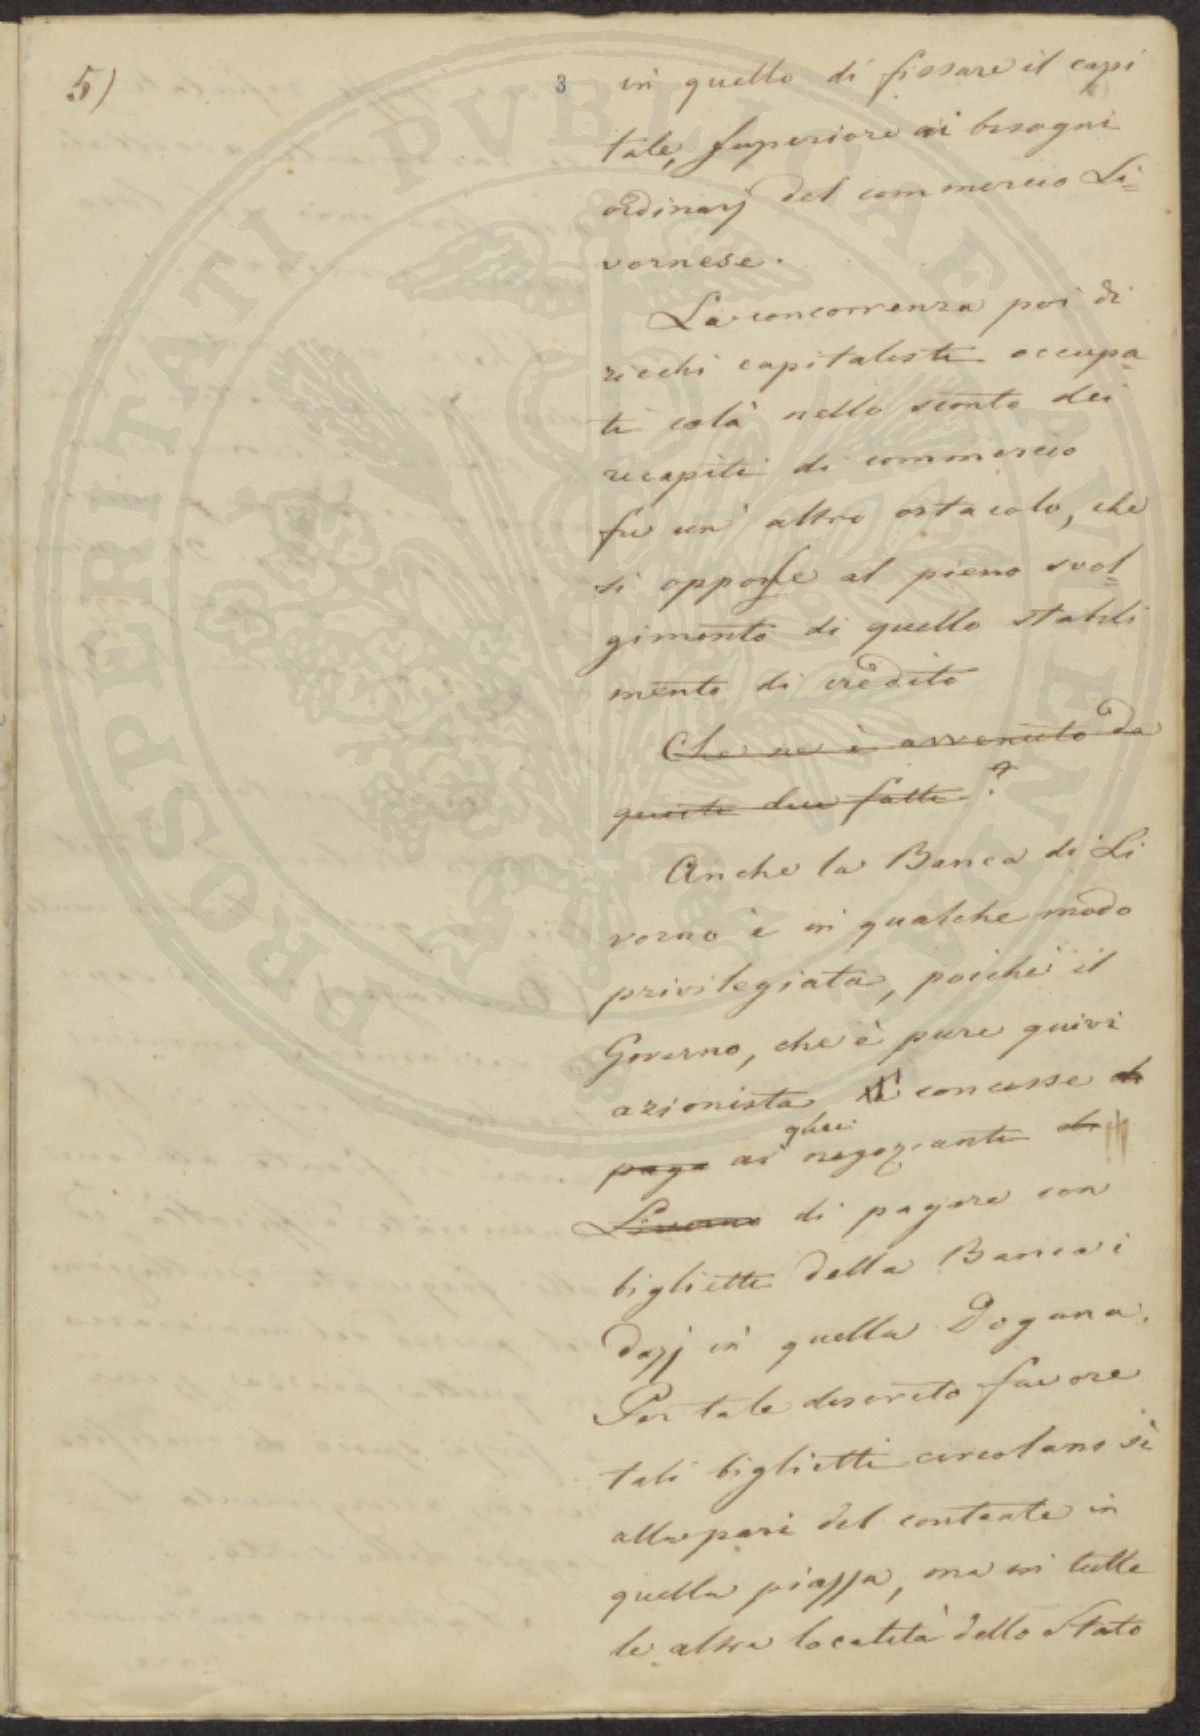 5)
3
in quello di fissare il capi
tale, superiore ai bisogni
ordinarj del commercio Li=
vornese.
La concorrenza poi di
ricchi capitalisti occupa=
ti colà nello sconto dei
recapiti di commercio
fu un' altro ostacolo, che
si oppose al pieno svol=
gimento di quello stabili
mento di credito
Che ne è avvenuto da
questi due fatti?
Anche la Banca di Li
vorno è in qualche modo
privilegiata, poichè il
Governo, che è pure quivi
azionista concesse di
quei
paga ai negozianti di
Livorno di pagare con
biglietti della Banca i
dazj in quella Dogana.
Per tale discreto favore
tali biglietti circolano sì
alla pari del contante in
quella piazza, ma in tutte
le altre località dello Stato
PROSPERITATI PVBLICAE AVGENDAE